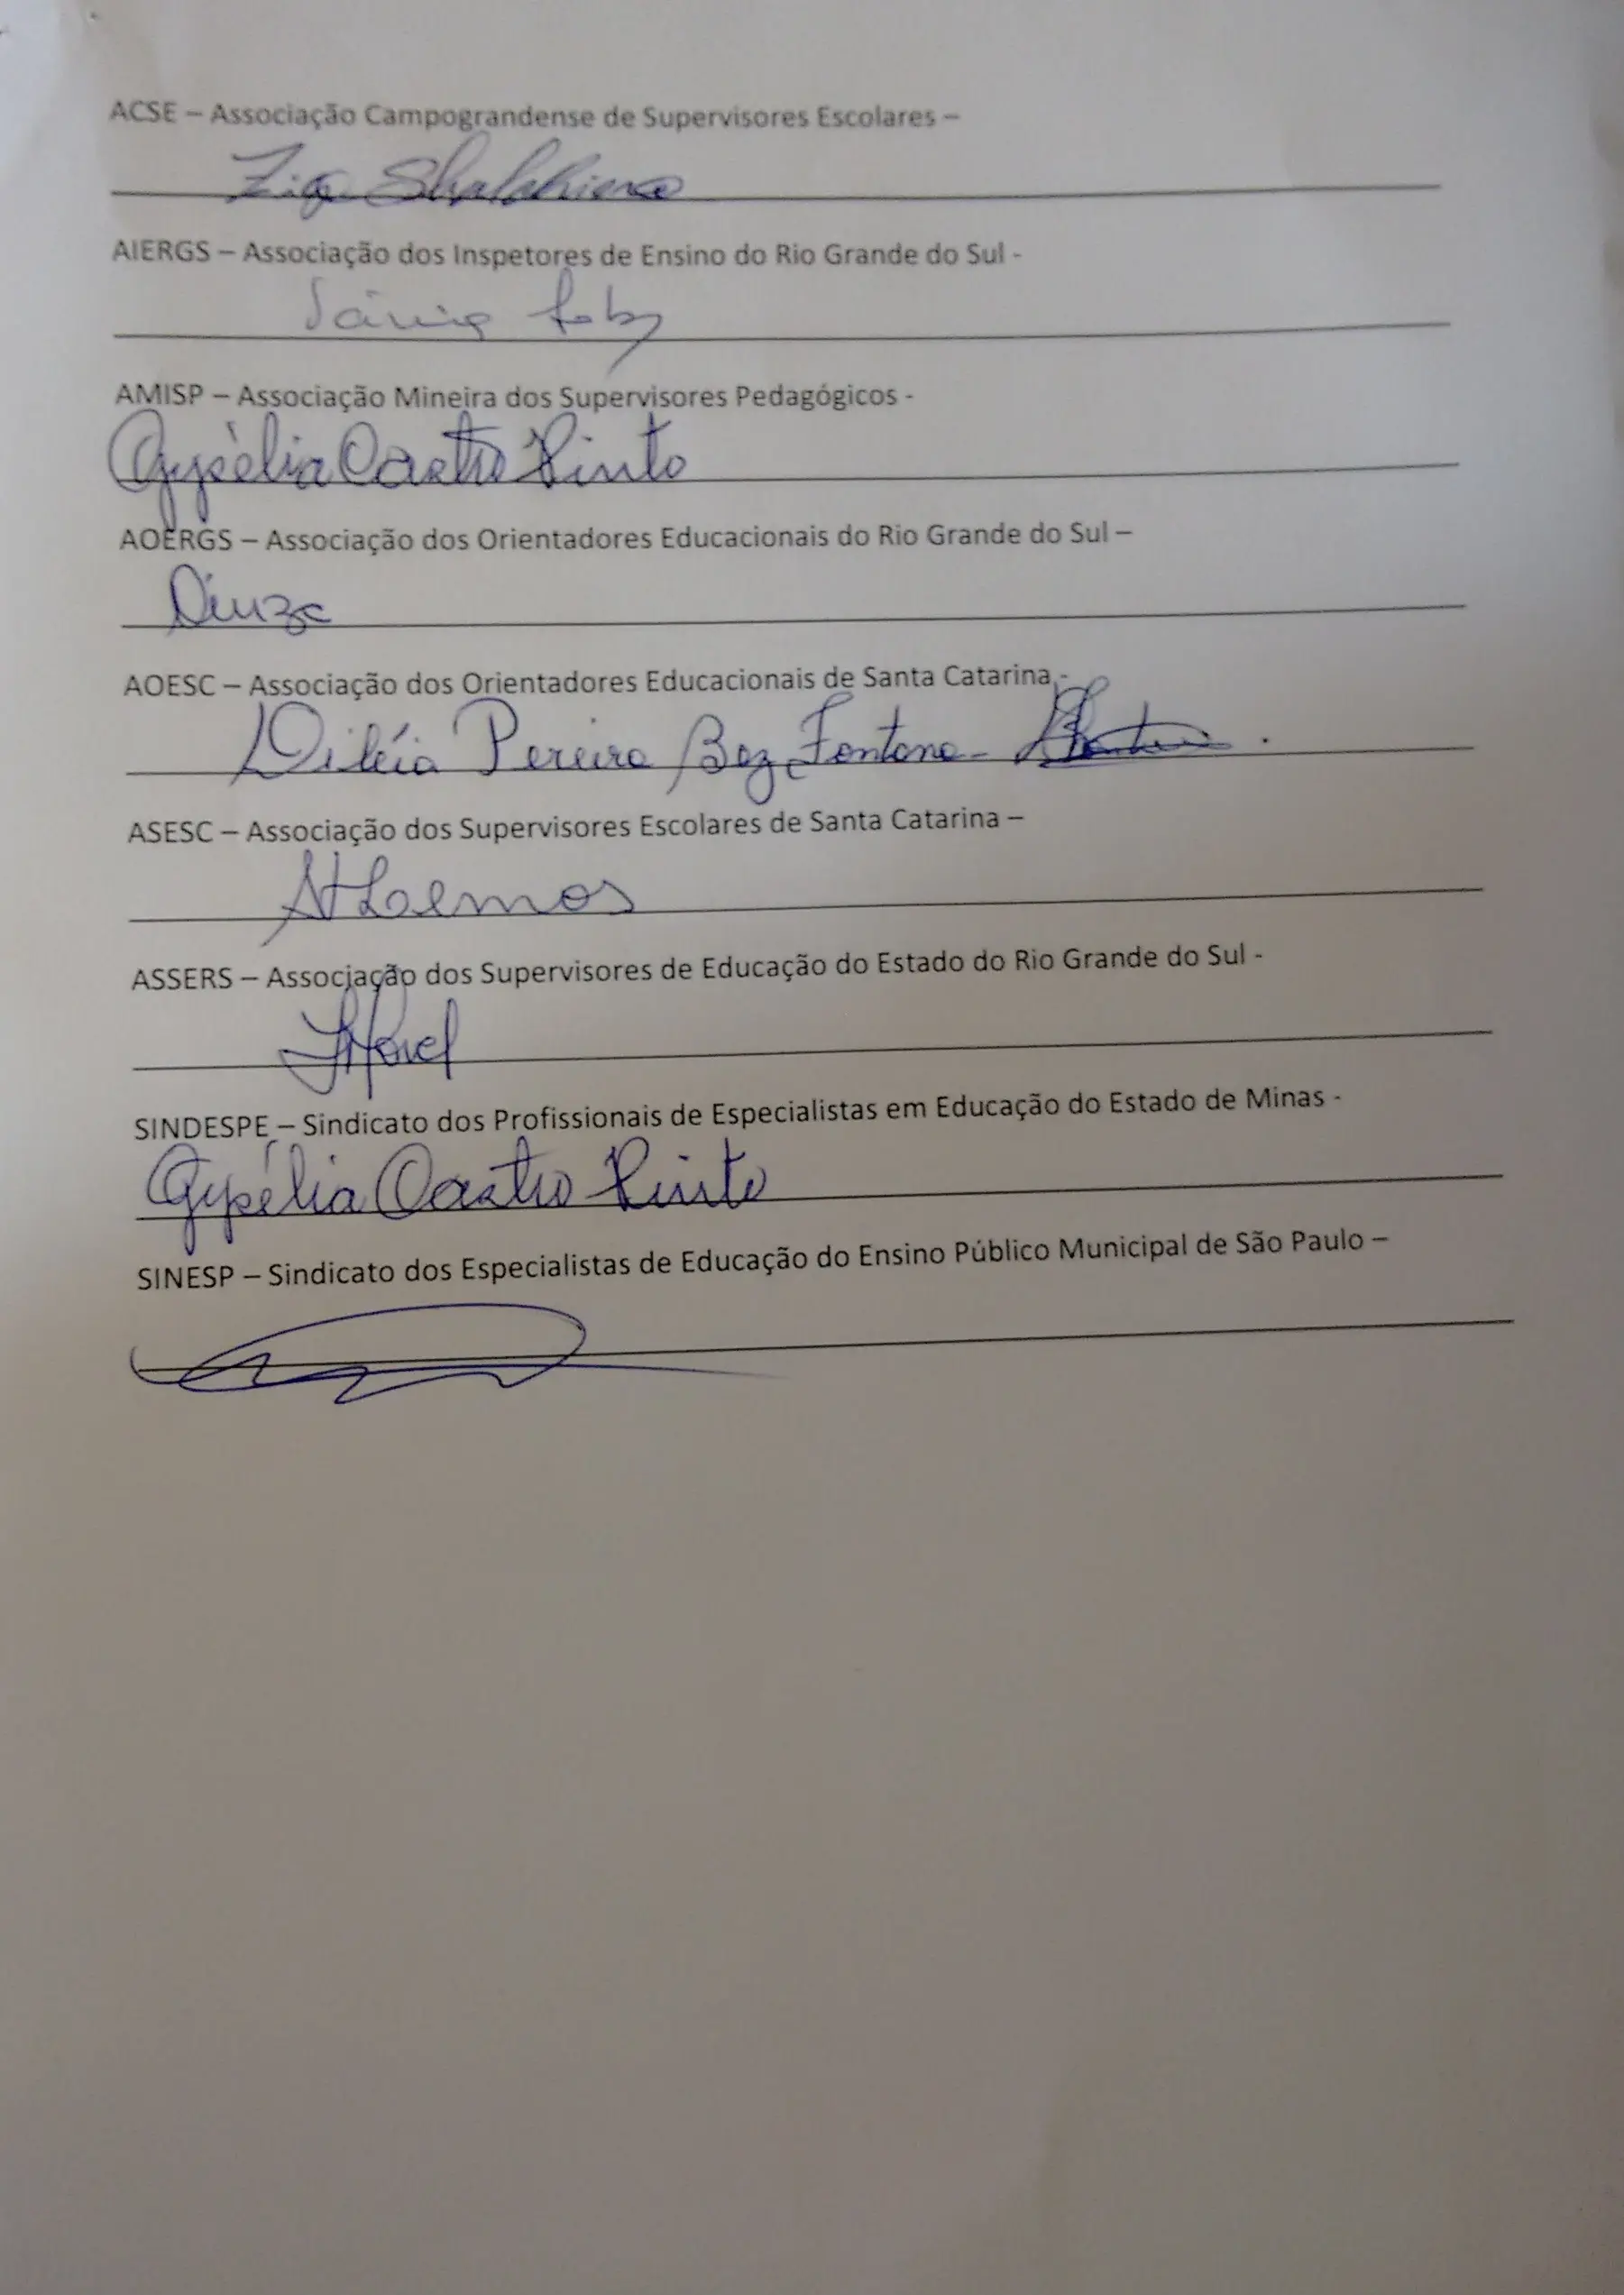 ACSE – Associação Campograndense de Supervisores Escolares –
AIERGS – Associação dos Inspetores de Ensino do Rio Grande do Sul -
AMISP – Associação Mineira dos Supervisores Pedagógicos -
Gysélia Castro Pinto
AOERGS – Associação dos Orientadores Educacionais do Rio Grande do Sul –
AOESC – Associação dos Orientadores Educacionais de Santa Catarina -
Diléia Pereira Bez Fontana -
ASESC – Associação dos Supervisores Escolares de Santa Catarina –
ASSERS – Associação dos Supervisores de Educação do Estado do Rio Grande do Sul -
SINDESPE – Sindicato dos Profissionais de Especialistas em Educação do Estado de Minas -
Gysélia Castro Pinto
SINESP – Sindicato dos Especialistas de Educação do Ensino Público Municipal de São Paulo –